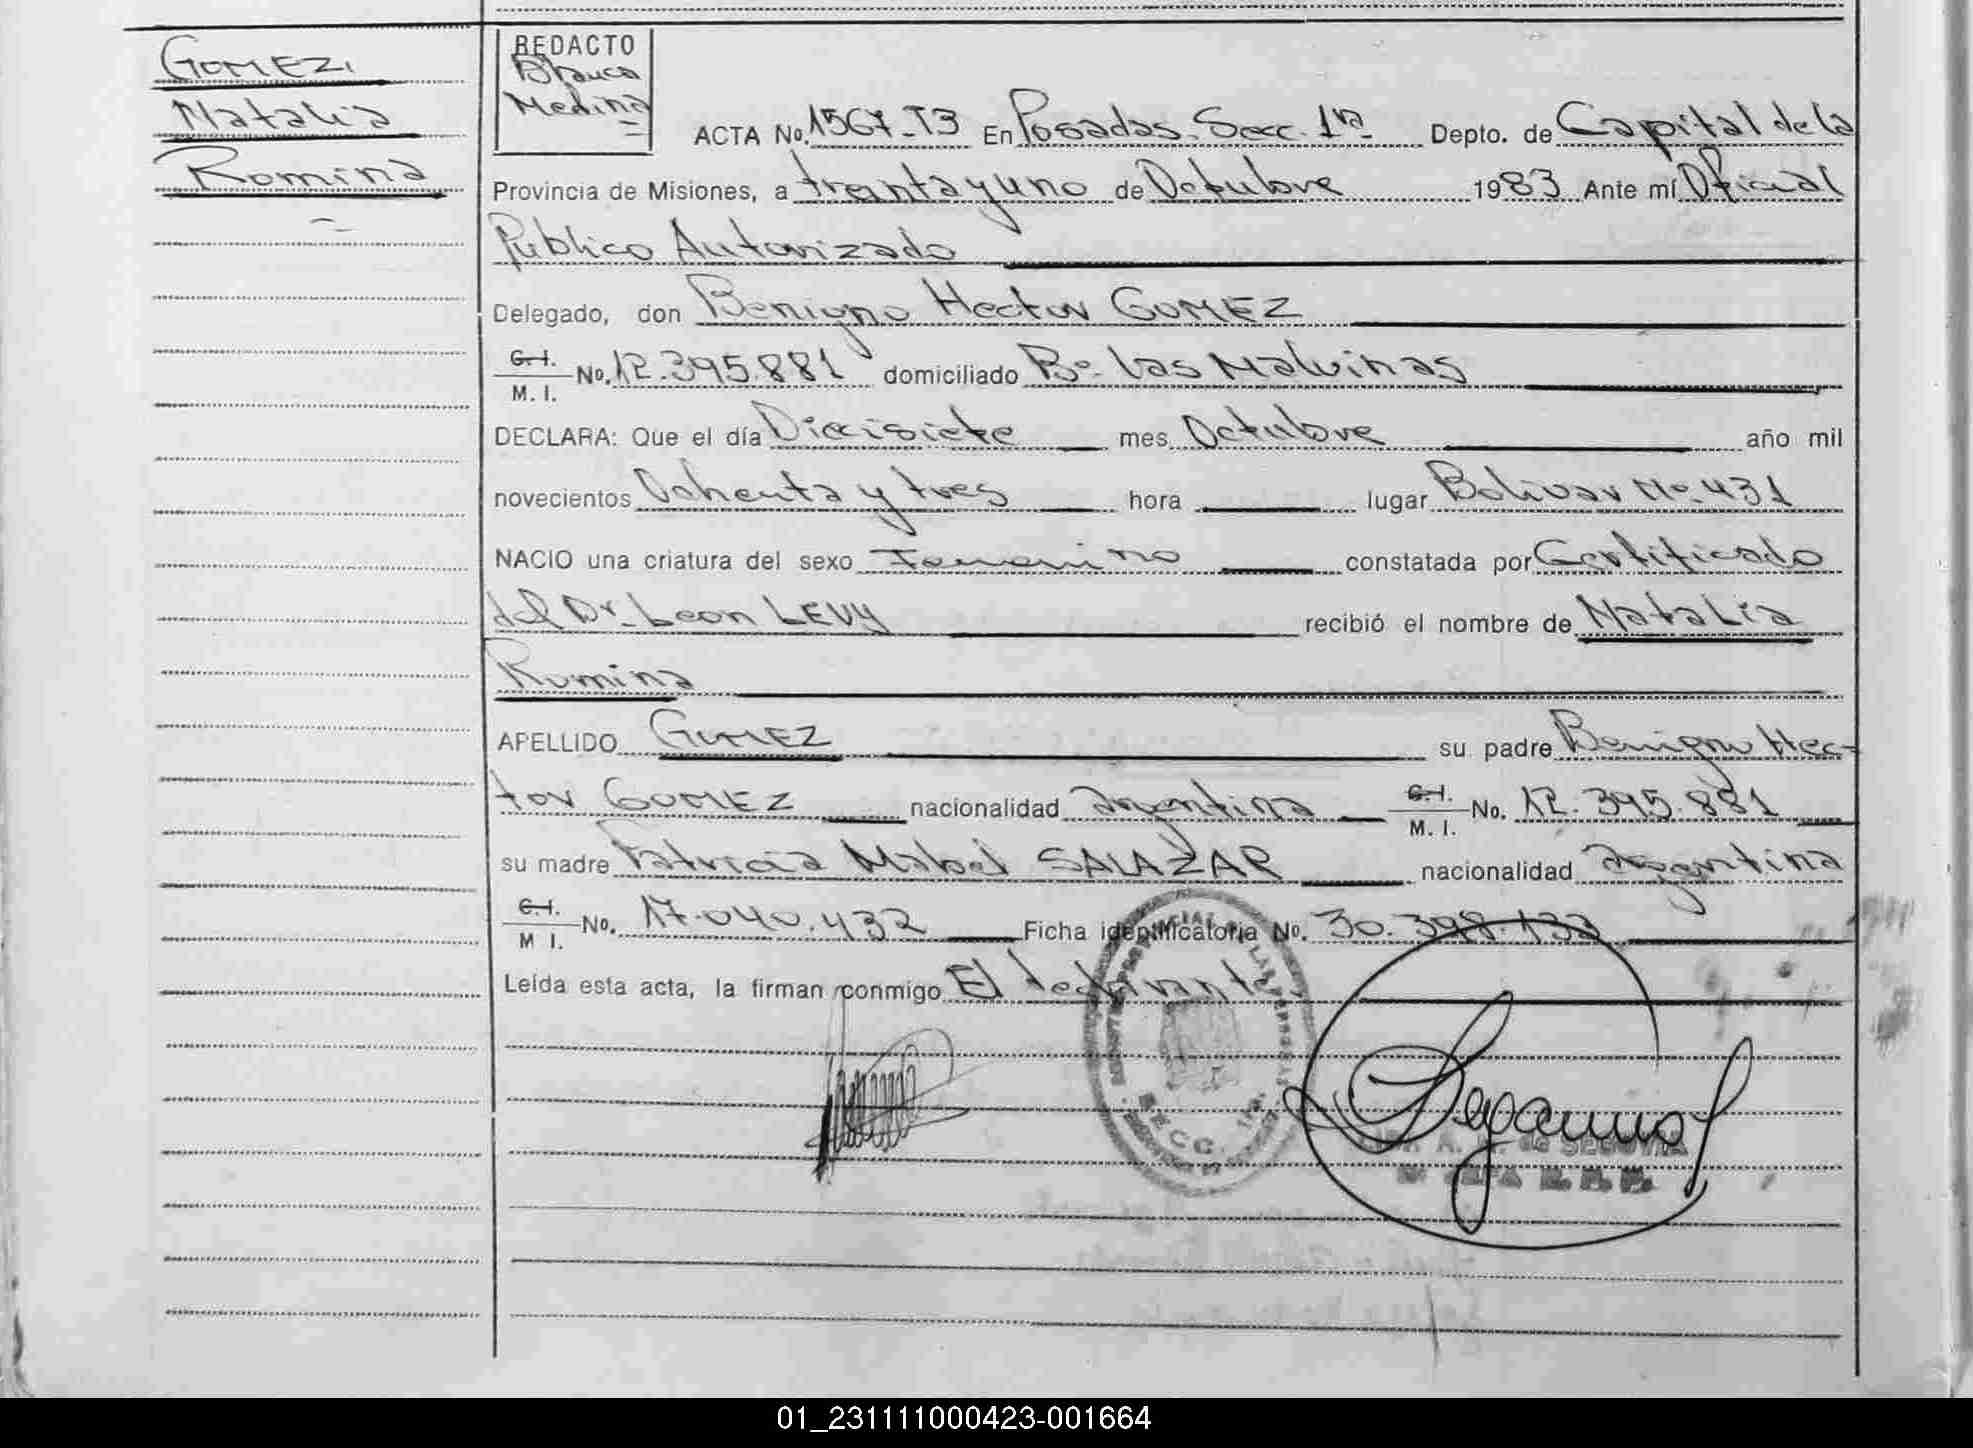 GOMEZ,
Natalia
Romina
REDACTO
Blanca
Medina
ACTA No. 1567-T3 En Posadas. Secc. 1ra. Depto. de Capital de la
Provincia de Misiones, a treinta y uno de Octubre 1983 Ante mí Oficial
Público Autorizado
Delegado, don Benigno Hector GOMEZ
C. I. M. I. No. 12.395.881 domiciliado Bo. las Malvinas
DECLARA: Que el día Diecisiete mes Octubre año mil
novecientos Ochenta y tres hora lugar Bolivar No. 431
NACIO una criatura del sexo Femenino constatada por Certificado
del Dr. Leon LEVY recibió el nombre de Natalia
Romina
APELLIDO GOMEZ su padre Benigno Hec-
tor GOMEZ nacionalidad argentina C. I. M. I. No. 12.395.881
su madre Patricia Mabel SALAZAR nacionalidad argentina
C. I. M I. No. 17.040.432 Ficha identificatoria No. 30.398.133
Leída esta acta, la firman conmigo El declarante
SECC. 1ra.
de SEGOVIA
01_231111000423-001664